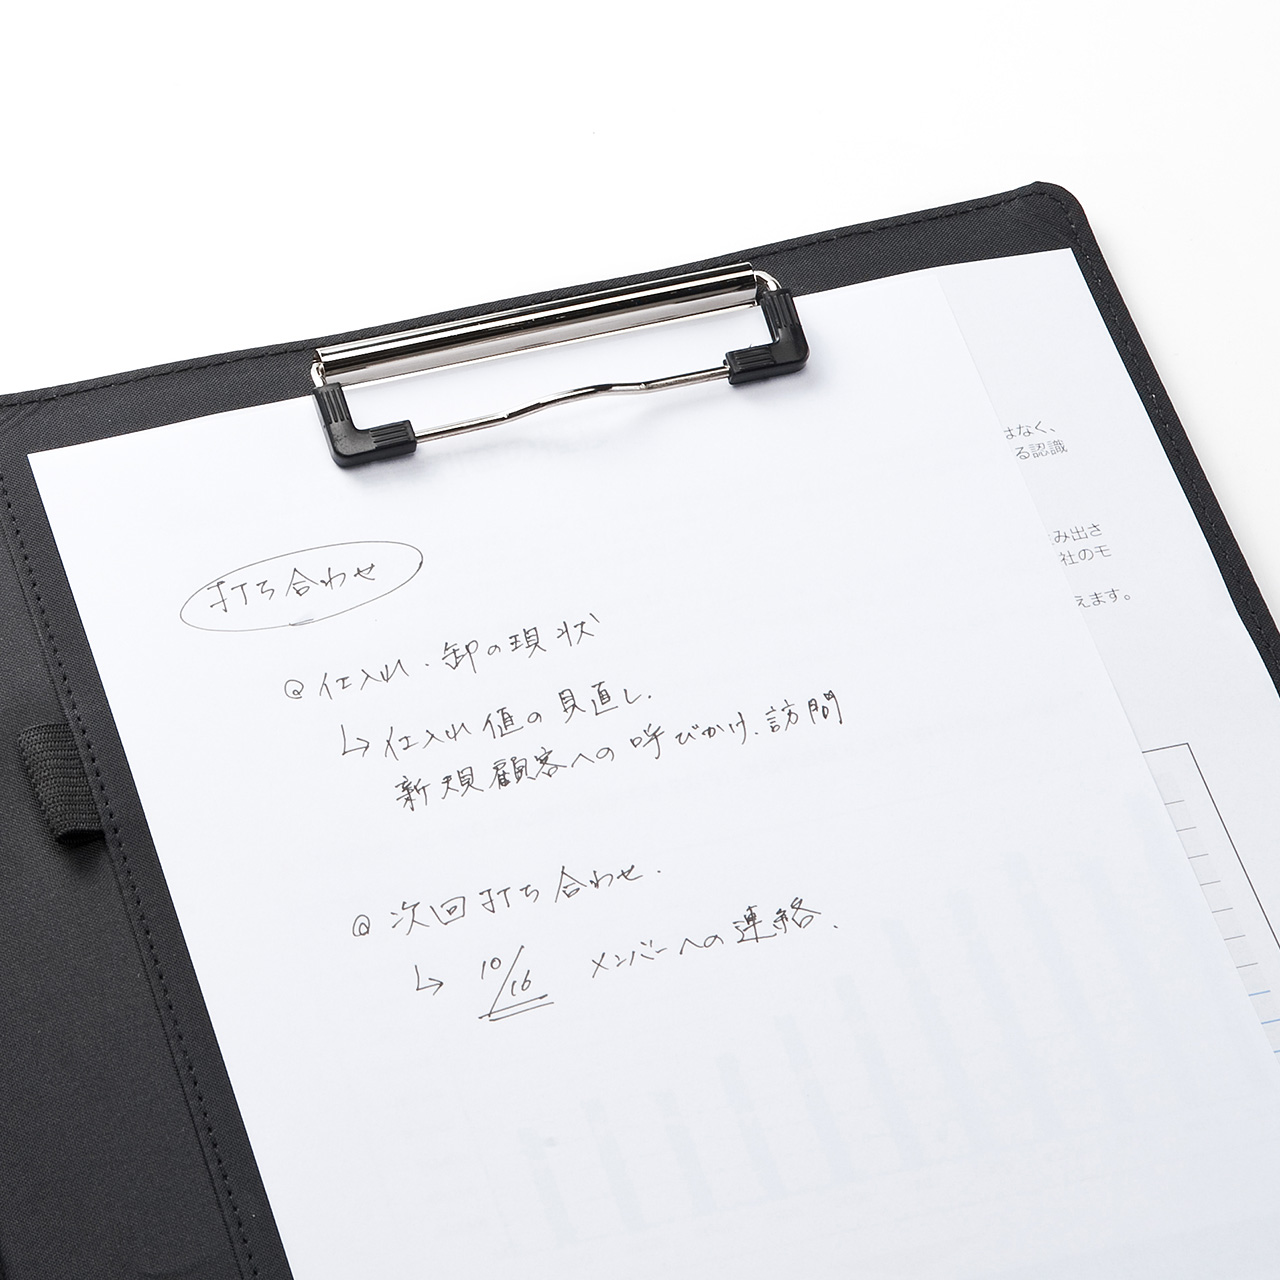 打ち合わせ
@ 仕入れ・卸の現状
↳ 仕入れ値の見直し.
新規顧客への呼びかけ、訪問
@ 次回打ち合わせ.
↳ 10/16 メンバーへの連絡、
はなく、
る認識
み出さ
社のモ
えます。